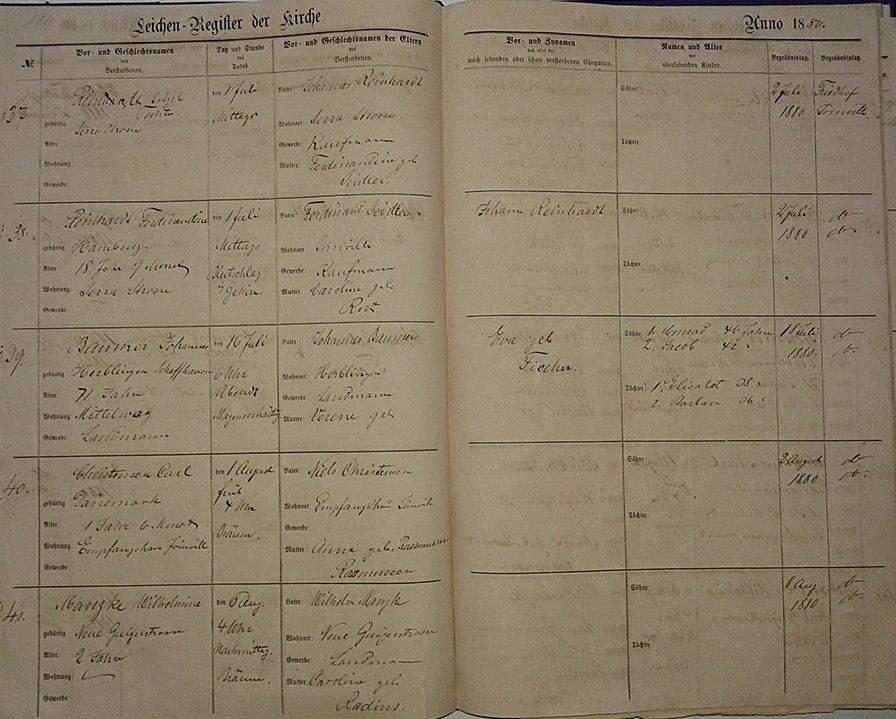 Leichen-Register der Kirche
Anno 1880.
№
Vor- und Geschlechtsnamen
des
Verstorbenen.
Tag und Stunde
des
Todes.
Vor- und Geschlechtsnamen der Eltern
des
Verstorbenen.
Vor- und Zunamen
des oder der
noch lebenden oder schon verstorbenen Ehegatten.
Namen und Alter
der
überlebenden Kinder.
Begräbnißtag.
Begräbnißplatz.
37
Reinhardt
gebürtig Serra Strasse
Alter:
Wohnung
Gewerbe:
den 1 Juli
Mittags
Vater: Johannes Reinhardt
Wohnort: Serra Strasse
Gewerbe: Kaufmann
Mutter: Ferdinandine geb
Seidler.
Söhne:
Töchter:
2 Juli
1880
Friedhof
Joinville
38.
Reinhardt Ferdinandine
gebürtig Hamburg
Alter 18 Jahr 9 Monat
Wohnung Serra Strasse
Gewerbe:
den 1 Juli
Mittags
Vater: Ferdinand Seidler
Wohnort Joinville
Gewerbe: Kaufmann
Mutter: Caroline geb
Johann Reinhardt
Söhne:
Töchter:
2 Juli
1880
do
do
39.
Johannes
gebürtig Herblingen Schaffhausen
Alter: 71 Jahr
Wohnung Mittelweg
Gewerbe: Landmann
den 16 Juli
6 Uhr
Abends
Vater: Johannes
Wohnort: Herblingen
Gewerbe: Landmann
Mutter: Verene geb
Eva geb
Fischer.
Söhne: 1. Conrad 46 Jahre
2. Jacob 42 "
Töchter: 1. Elisabet 38 "
2. Barbara 36 "
18 Juli
1880.
do
do
40.
Christensen Carl
gebürtig Danemark
Alter: 1 Jahr 6 Monat
Wohnung Empfangshaus Joinville
Gewerbe
den 1 August
früh
4 Uhr
Bräune.
Vater: Niels Christensen
Wohnort: Empfangshaus Joinville
Gewerbe:
Mutter: Anna geb. Rasmussen
Rasmussen
Söhne:
Töchter:
2 August
1880
do
do
41.
Manzke Wilhelmine
gebürtig Neue Geigerstrasse
Alter: 2 Jahr
Wohnung:
Gewerbe:
den 6 Aug.
4 Uhr
Nachmittag.
Bräune.
Vater: Wilhelm Manzke
Wohnort: Neue Geigerstrasse
Gewerbe: Landmann
Mutter: Caroline geb
Radins.
Söhne:
Töchter
8 Aug
1880
do
do